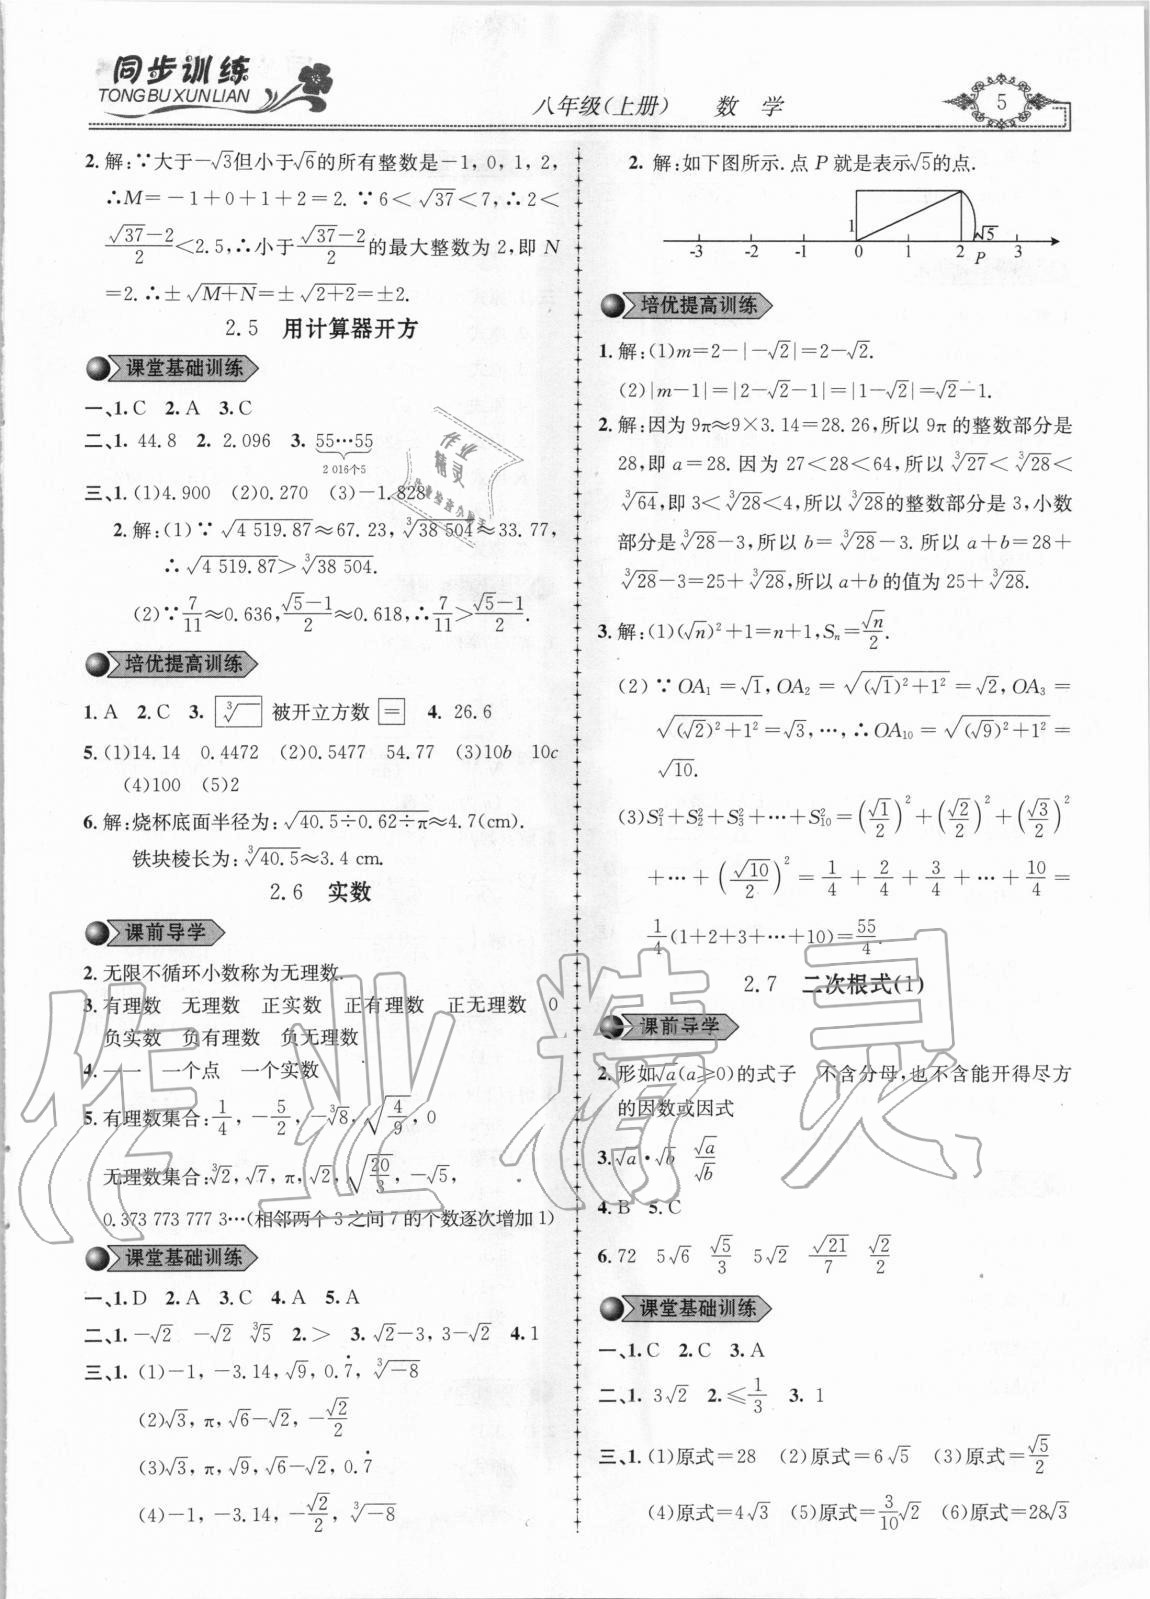 同步训练
TONGBUXUNLIAN
八年级(上册) 数 学
5
2. 解:∵大于-√3但小于√6的所有整数是-1, 0, 1, 2,
∴M=-1+0+1+2=2. ∵6<√37<7,∴2<
(√37-2)/2<2.5,∴小于(√37-2)/2的最大整数为2,即 N
=2. ∴±√(M+N)=±√(2+2)=±2.
2.5 用计算器开方
课堂基础训练
一、1. C 2. A 3. C
二、1. 44.8 2. 2.096 3. 55…55
2 016个5
三、1. (1)4.900 (2)0.270 (3)-1.828
2. 解:(1)∵√(4 519.87)≈67.23, ∛(38 504)≈33.77,
∴√(4 519.87)>∛(38 504).
(2)∵7/11≈0.636, (√5-1)/2≈0.618,∴7/11>(√5-1)/2.
培优提高训练
1. A 2. C 3. ∛ 被开立方数 = 4. 26.6
5. (1)14.14 0.4472 (2)0.5477 54.77 (3)10b 10c
(4)100 (5)2
6. 解:烧杯底面半径为:√(40.5÷0.62÷π)≈4.7(cm).
铁块棱长为:∛40.5≈3.4 cm.
2.6 实数
课前导学
2. 无限不循环小数称为无理数.
3. 有理数 无理数 正实数 正有理数 正无理数 0
负实数 负有理数 负无理数
4. 一一 一个点 一个实数
5. 有理数集合:1/4, -5/2, -∛8, √(4/9), 0
无理数集合:∛2, √7, π, √2, √(20/3), -√5,
0.373 773 777 3…(相邻两个 3 之间 7 的个数逐次增加 1)
课堂基础训练
一、1. D 2. A 3. C 4. A 5. A
二、1. -√2 -√2 ∛5 2. > 3. √2-3, 3-√2 4. 1
三、1. (1)-1, -3.14, √9, 0.7̇, ∛-8
(2)√3, π, √6-√2, -√2/2
(3)√3, π, √9, √6-√2, 0.7̇
(4)-1, -3.14, -√2/2, ∛-8
2. 解:如下图所示. 点 P 就是表示√5的点.
1
√5
-3 -2 -1 0 1 2 3
P
培优提高训练
1. 解:(1)m=2-|-√2|=2-√2.
(2)|m-1|=|2-√2-1|=|1-√2|=√2-1.
2. 解:因为 9π≈9×3.14=28.26,所以 9π 的整数部分是
28,即 a=28. 因为 27<28<64,所以∛27<∛28<
∛64,即 3<∛28<4,所以∛28的整数部分是 3,小数
部分是∛28-3,所以 b=∛28-3. 所以 a+b=28+
∛28-3=25+∛28,所以 a+b 的值为 25+∛28.
3. 解:(1)(√n)²+1=n+1, Sₙ=√n/2.
(2)∵OA₁=√1, OA₂=√((√1)²+1²)=√2, OA₃=
√((√2)²+1²)=√3, …,∴OA₁₀=√((√9)²+1²)=
√10.
(3)S₁²+S₂²+S₃²+…+S₁₀²=(√1/2)²+(√2/2)²+(√3/2)²
+…+(√10/2)²=1/4+2/4+3/4+…+10/4=
1/4(1+2+3+…+10)=55/4.
2.7 二次根式(1)
课前导学
2. 形如√a(a≥0)的式子 不含分母,也不含能开得尽方
的因数或因式
3. √a·√b √a/√b
4. B 5. C
6. 72 5√6 √5/3 5√2 √21/7 √2/2
课堂基础训练
一、1. C 2. C 3. A
二、1. 3√2 2. ≤1/3 3. 1
三、1. (1)原式=28 (2)原式=6√5 (3)原式=√5/2
(4)原式=4√3 (5)原式=3/10√2 (6)原式=28√3
作业精灵
作业
精灵